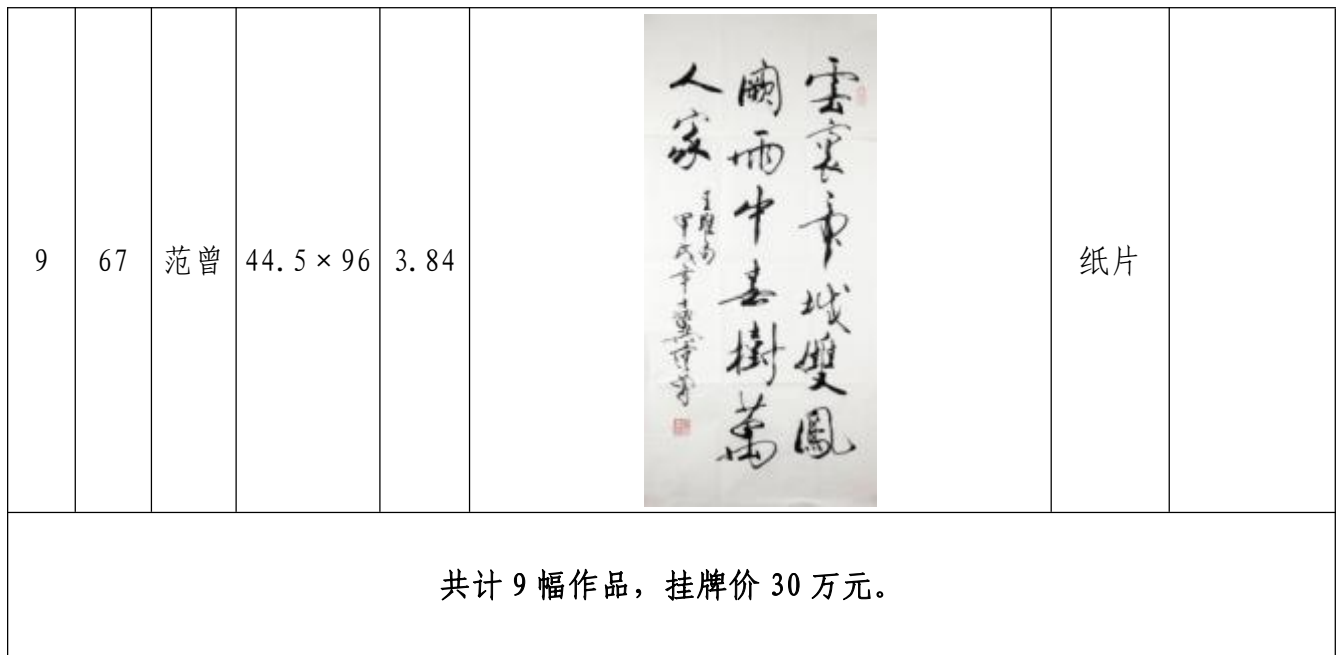 9
67
范曾
44.5×96
3.84
雲裏帝城雙鳳
闕雨中春樹萬
人家
王維句
甲戌年十翼范曾
纸片
共计 9 幅作品，挂牌价 30 万元。